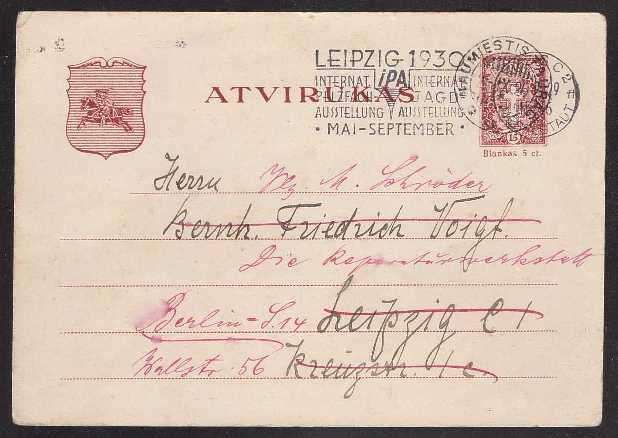 LEIPZIG 1930
INTERNAT iPA INTERNAT
PELZFACH JAGD
AUSSTELLUNG AUSSTELLUNG
• MAI-SEPTEMBER •
NAUMIESTIS
C2
ATVIRUKAS
15
Blankas 5 ct.
Herrn Wg. M. Schröder
Bernh. Friedrich Voigt.
Die Reparaturwerkstatt
Berlin-S.14 Leipzig C 1
Wallstr. 56 Kreuzstr. 1c.